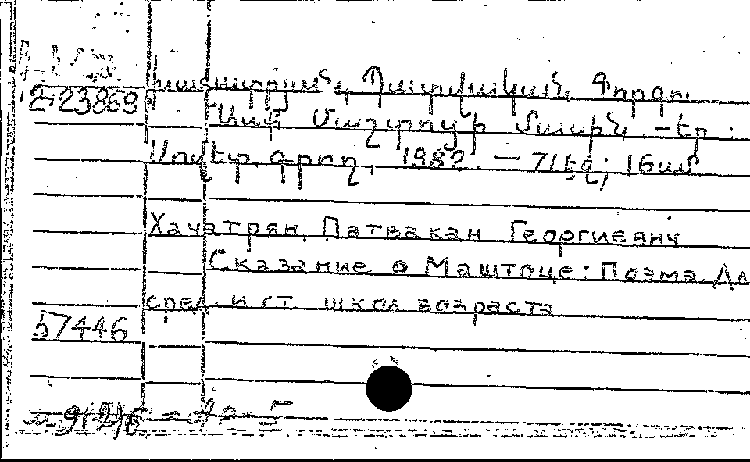 2-23869
Խաչատրյան, Պատվական Գորգու
Ասք Մաշտոցի մասին. -Եր.:
Սովետ. գրող, 1982. — 71 էջ; 16սմ
Хачатрян, Патвакан Георгиевич
Сказание о Маштоце: Поэма Дл
сред. и ст. школ. возраста
57446